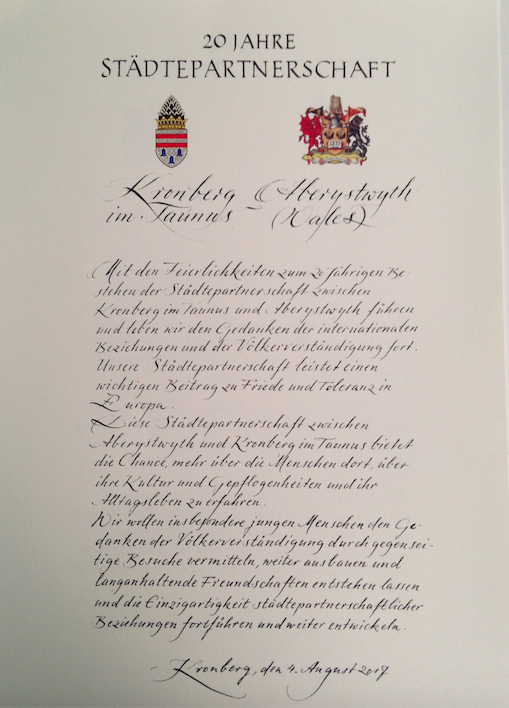 20 JAHRE
STÄDTEPARTNERSCHAFT
Kronberg - Aberystwyth
im Taunus (Wales)
Mit den Feierlichkeiten zum 20 jährigen Be-
stehen der Städtepartnerschaft zwischen
Kronberg im Taunus und Aberystwyth führen
und leben wir den Gedanken der internationalen
Beziehungen und der Völkerverständigung fort.
Unsere Städtepartnerschaft leistet einen
wichtigen Beitrag zu Friede und Toleranz in
Europa.
Diese Städtepartnerschaft zwischen
Aberystwyth und Kronberg im Taunus bietet
die Chance, mehr über die Menschen dort, über
ihre Kultur und Gepflogenheiten und ihr
Alltagsleben zu erfahren.
Wir wollen insbesondere jungen Menschen den Ge-
danken der Völkerverständigung durch gegensei-
tige Besuche vermitteln, weiter ausbauen und
langanhaltende Freundschaften entstehen lassen
und die Einzigartigkeit städtepartnerschaftlicher
Beziehungen fortführen und weiter entwickeln.
- Kronberg, den 4. August 2017